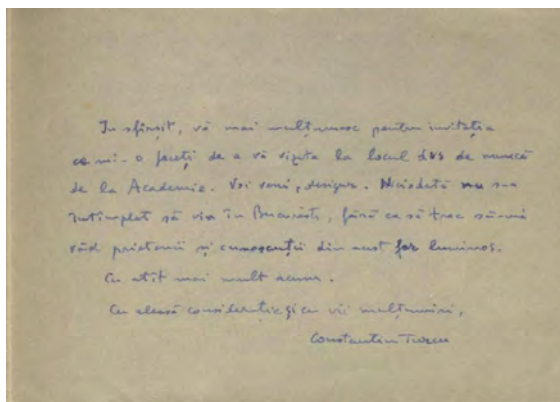 In sfârșit, vă mai mulțumesc pentru invitația
ce mi-o faceți de a vă vizita la locul dvs de muncă
de la Academie. Voi veni, desigur. Niciodată nu s-a
întîmplat să vin în București, fără ca să trec să-mi
văd prietenii și cunoscuții din acest for luminos.
Cu atît mai mult acum.
Cu aleasă considerație și cu vii mulțumiri,
Constantin